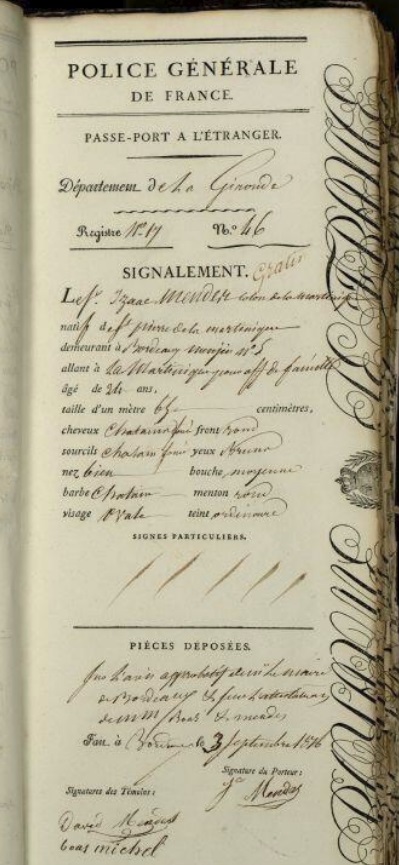 POLICE GÉNÉRALE
DE FRANCE.
PASSE-PORT A L'ÉTRANGER.
Département de La Gironde
Registre N.º 17 N.º 46
SIGNALEMENT. Gratis
Le Sr. Izaac Mendes colon de la martinique
natif de St pierre de la martinique
demeurant à Bordeaux nº 5
allant à La Martinique pour aff. de famille
âgé de 24 ans,
taille d'un mètre centimètres,
cheveux Chatains front rond
sourcils chatain yeux Bruns
nez bien bouche moyenne
barbe Chatain menton rond
visage Ovale teint ordinaire
SIGNES PARTICULIERS.
PIÈCES DÉPOSÉES.
Sur l'avis approbatif de Mr. le Maire
de Bordeaux & sur l'attestation
de MM & mendes
Fait à Bordeaux le 3 Septembre 1816
Signature du Porteur:
Mendes
Signatures des Témoins:
David Mendes
michel